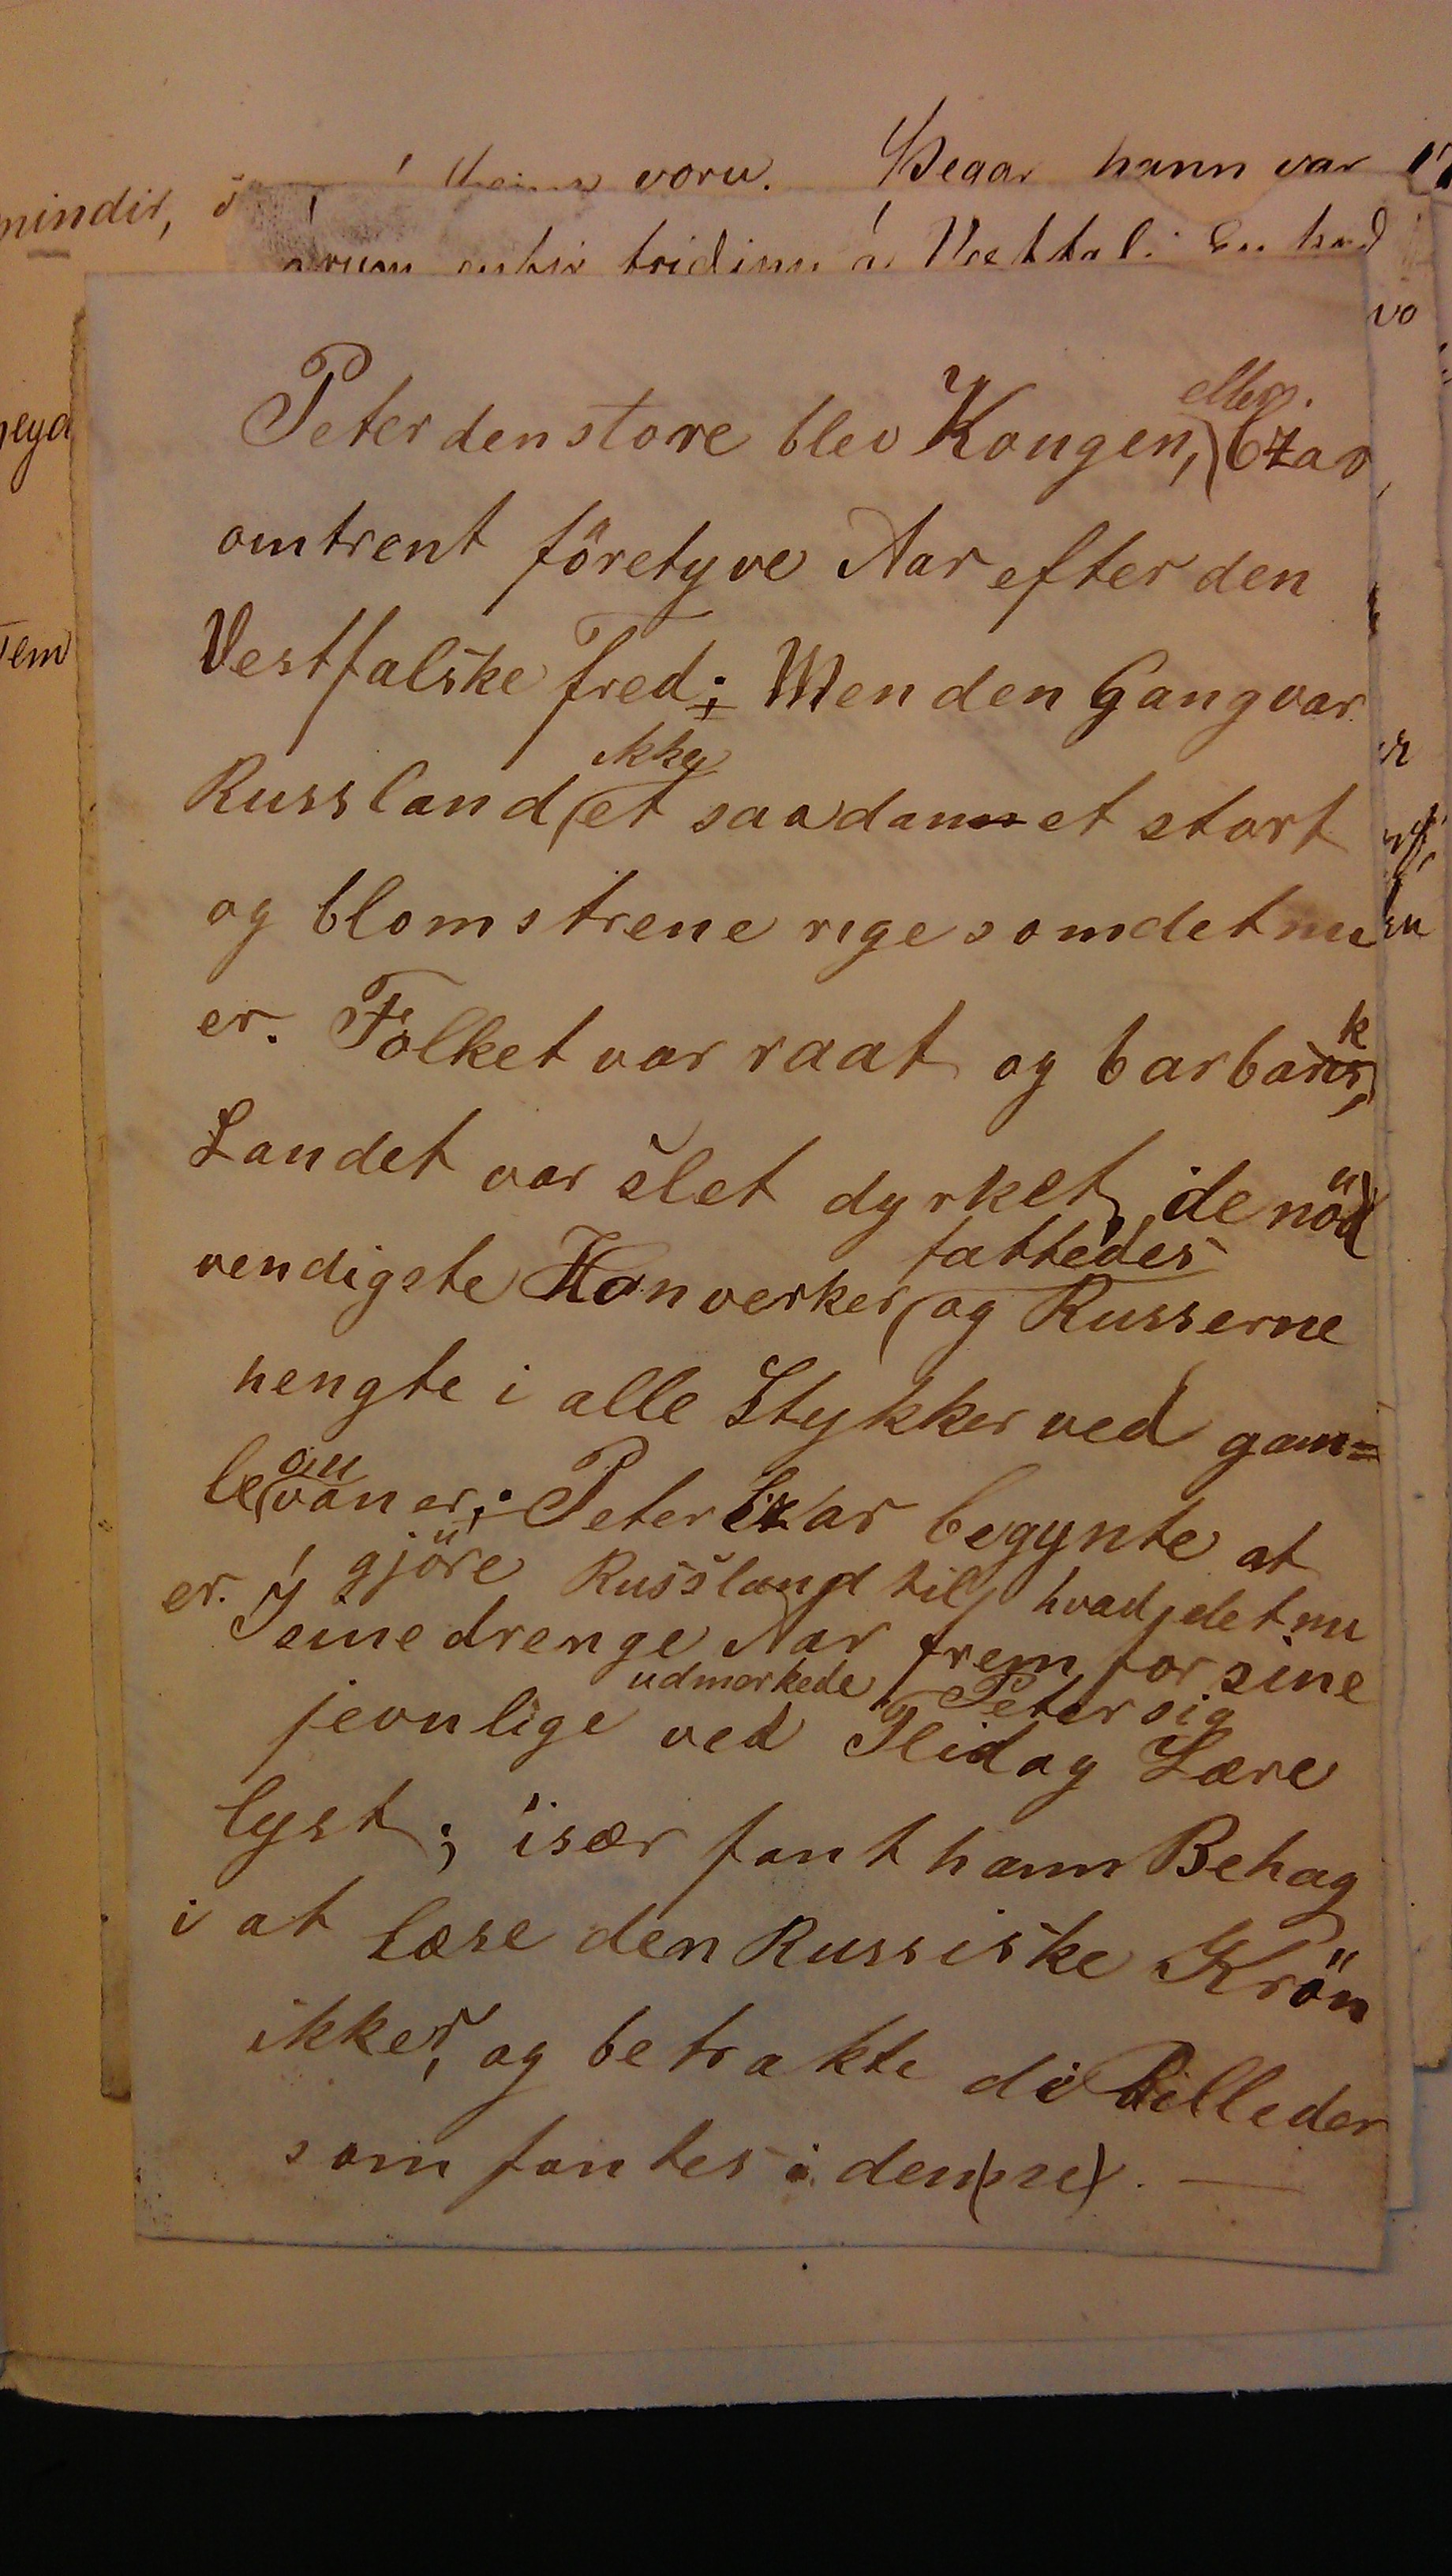 voru. Þegar hann var
mindir,
eller
Peter den store blev Kongen, Czar
omtrent företyve Aar efter den
Vestfalske Fred; Men den Gang var
ikke
Russland et saadannet stort
og blomstrene rige som det nu
er. Folket var raat og barbarisk,
Landet var slet dyrket, de nöd
fattedes
vendigste Hanverker og Russerne
hengte i alle Stykker ved gam=
le vaner; Peter Czar begynte at
gjöre Russland til hvad det nu
er. I sine drenge Aar frem for sine
udmerkede Peter sig
jevnlige ved Flid og Lære
lyst; især fant hann Behag
i at læse den Russiske Krön
ikker, og betrakte di Billeder
som fantes i den(ne). —